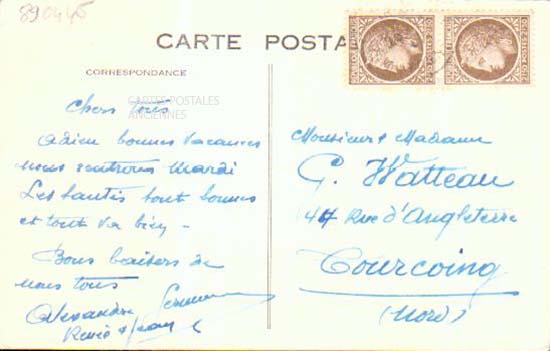 890445
CARTE POSTA
CORRESPONDANCE
CARTES POSTALES
ANCIENNES
Chers tous
Adieu bonnes vacances
nous rentrons Mardi
Les santés sont bonnes
et tout va bien -
Bons baisers de
nous tous
Alexandre
Renée & Jean
Monsieur & Madame
G. Watteau
47 Rue d'Angleterre
Tourcoing
(Nord)